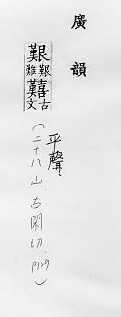 廣韻
艱艱難囏古文
平聲
(二十八山、古閑切、P129)